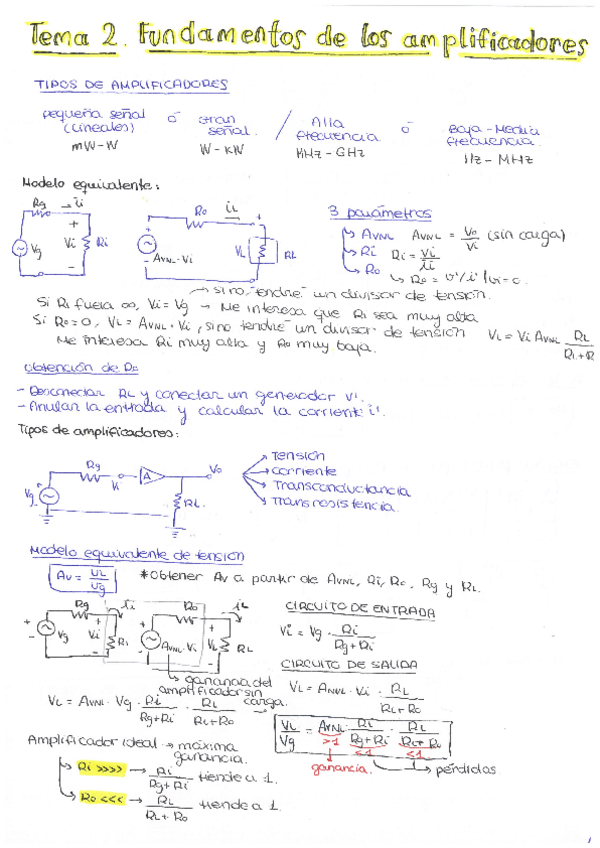 Tema 2. Fundamentos de los amplificadores
TIPOS DE AMPLIFICADORES
pequeña señal (lineales) ó gran señal / Alta frecuencia ó Baja-Media frecuencia
mW-W W-KW KHz-GHz Hz-MHz
Modelo equivalente:
Rg ii Ro iL
+ Vi - Ri Vg AVNL·Vi VL RL
3 parámetros
AVNL AVNL = Vo/Vi (sin carga)
Ri Ri = Vi/ii
Ro Ro = V'/i' | Vi=0.
→ sino, tendré un divisor de tensión.
Si Ri fuera ∞, Vi = Vg → Me interesa que Ri sea muy alta
Si Ro=0, VL = AVNL·Vi, sino tendré un divisor de tensión VL = Vi AVNL RL/(RL+R
Me interesa Ri muy alta y Ro muy baja.
Obtención de Ro
- Desconectar RL y conectar un generador V'.
- Anular la entrada y calcular la corriente i'.
Tipos de amplificadores:
Vg Rg Vi A Vo RL
Tensión
Corriente
Transconductancia
Transresistencia.
Modelo equivalente de tensión
Av = VL/Vg *Obtener Av a partir de AVNL, Ri, Ro, Rg y RL.
Rg ii Ro iL
+ - Vg Vi Ri AVNL·Vi VL RL
CIRCUITO DE ENTRADA
Vi = Vg · Ri/(Rg+Ri)
CIRCUITO DE SALIDA
ganancia del amplificador sin carga.
VL = AVNL · Vi · RL/(RL+Ro)
VL = AVNL · Vg · Ri/(Rg+Ri) · RL/(RL+Ro)
VL/Vg = AVNL · Ri/(Rg+Ri) · RL/(RL+Ro)
>1 <1 <1
ganancia. pérdidas
Amplificador ideal → máxima ganancia.
Ri >>>> → Ri/(Rg+Ri) tiende a 1.
Ro <<< → RL/(RL+Ro) tiende a 1.